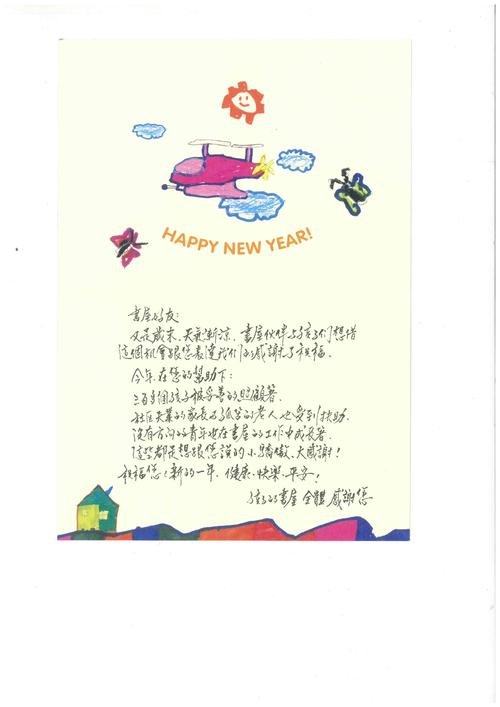 HAPPY NEW YEAR!
書屋好友:
又是歲末,天氣漸涼,書屋伙伴与孩子们想借
這個机會跟您表達我们的感謝与祝福。
今年在您的幫助下:
三百多個孩子被妥善的照顧著,
社區失業的家長与孤苦的老人也受到扶助,
沒有方向的青年也在書屋的工作中成長著,
這些都是想跟您說的小驕傲、大感謝!
祝福您:新的一年,健康、快樂、平安!
孩子的書屋 全體 感謝您